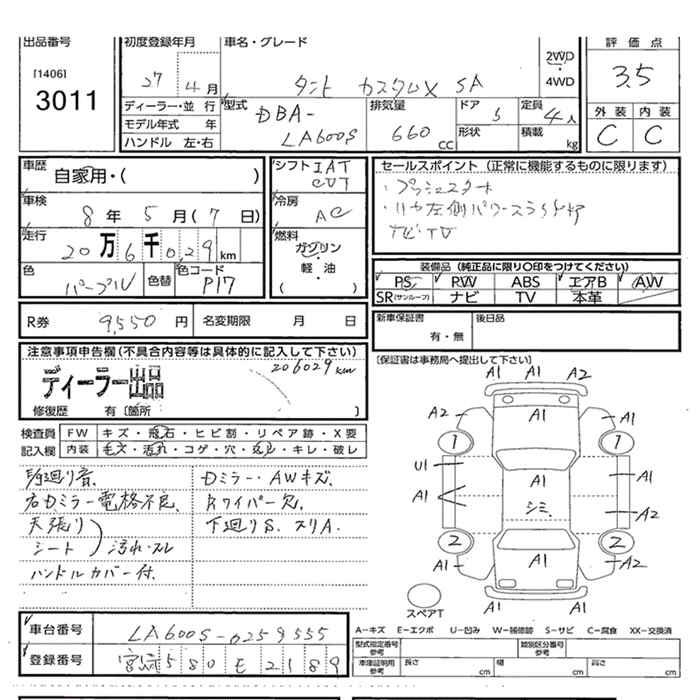 出品番号
[1406]
3011
初度登録年月
27年4月
車名・グレード
タント カスタムX SA
2WD
4WD
評価点
3.5
外装 内装
C C
ディーラー・並行
モデル年式 年
ハンドル 左・右
型式
DBA-
LA600S
排気量
660 cc
ドア
5
形状
定員
4人
積載 kg
車歴
自家用・( )
車検
8年5月(7日)
走行
20万6千029km
色
パープル
色替
色コード
P17
シフト IAT
CVT
冷房
AC
燃料
ガソリン
・
軽・油
( )
セールスポイント (正常に機能するものに限ります)
・プッシュスタート
・リヤ左側パワースライドドア
ナビ・TV
装備品 (純正品に限り○印をつけてください)
PS PW ABS エアB AW
SR(サンルーフ) ナビ TV 本革
R券 9,550円
名変期限 月 日
新車保証書
有・無
後日品
注意事項申告欄(不具合内容等は具体的に記入して下さい)
206029km
ディーラー出品
修復歴 有〔箇所 〕
[保証書は事務局へ提出して下さい]
検査員
記入欄
FW キズ・飛石・ヒビ割・リペア跡・X要
内装 キズ・汚れ・コゲ・穴・スレ・キレ・破レ
駆廻り音.
右Dミラー電格不良.
天張り
シート 汚れ・スレ
ハンドルカバー付.
Dミラー・AWキズ.
Rワイパー欠.
下廻りS. スリA.
A1 A1 A2
A2 A1 A1
1 1
U1 A1
A1 A1
シミ. A2
2 2
A1 A1 A1
A1 A1
スペアT
A-キズ E-エクボ U-凹み W-補修跡 S-サビ C-腐食 XX-交換済
車台番号 LA600S-0259555
登録番号 宮崎580E2189
型式指定番号
参考
類別区分番号
参考
車庫証明用
参考
長さ cm
幅 cm
高さ cm